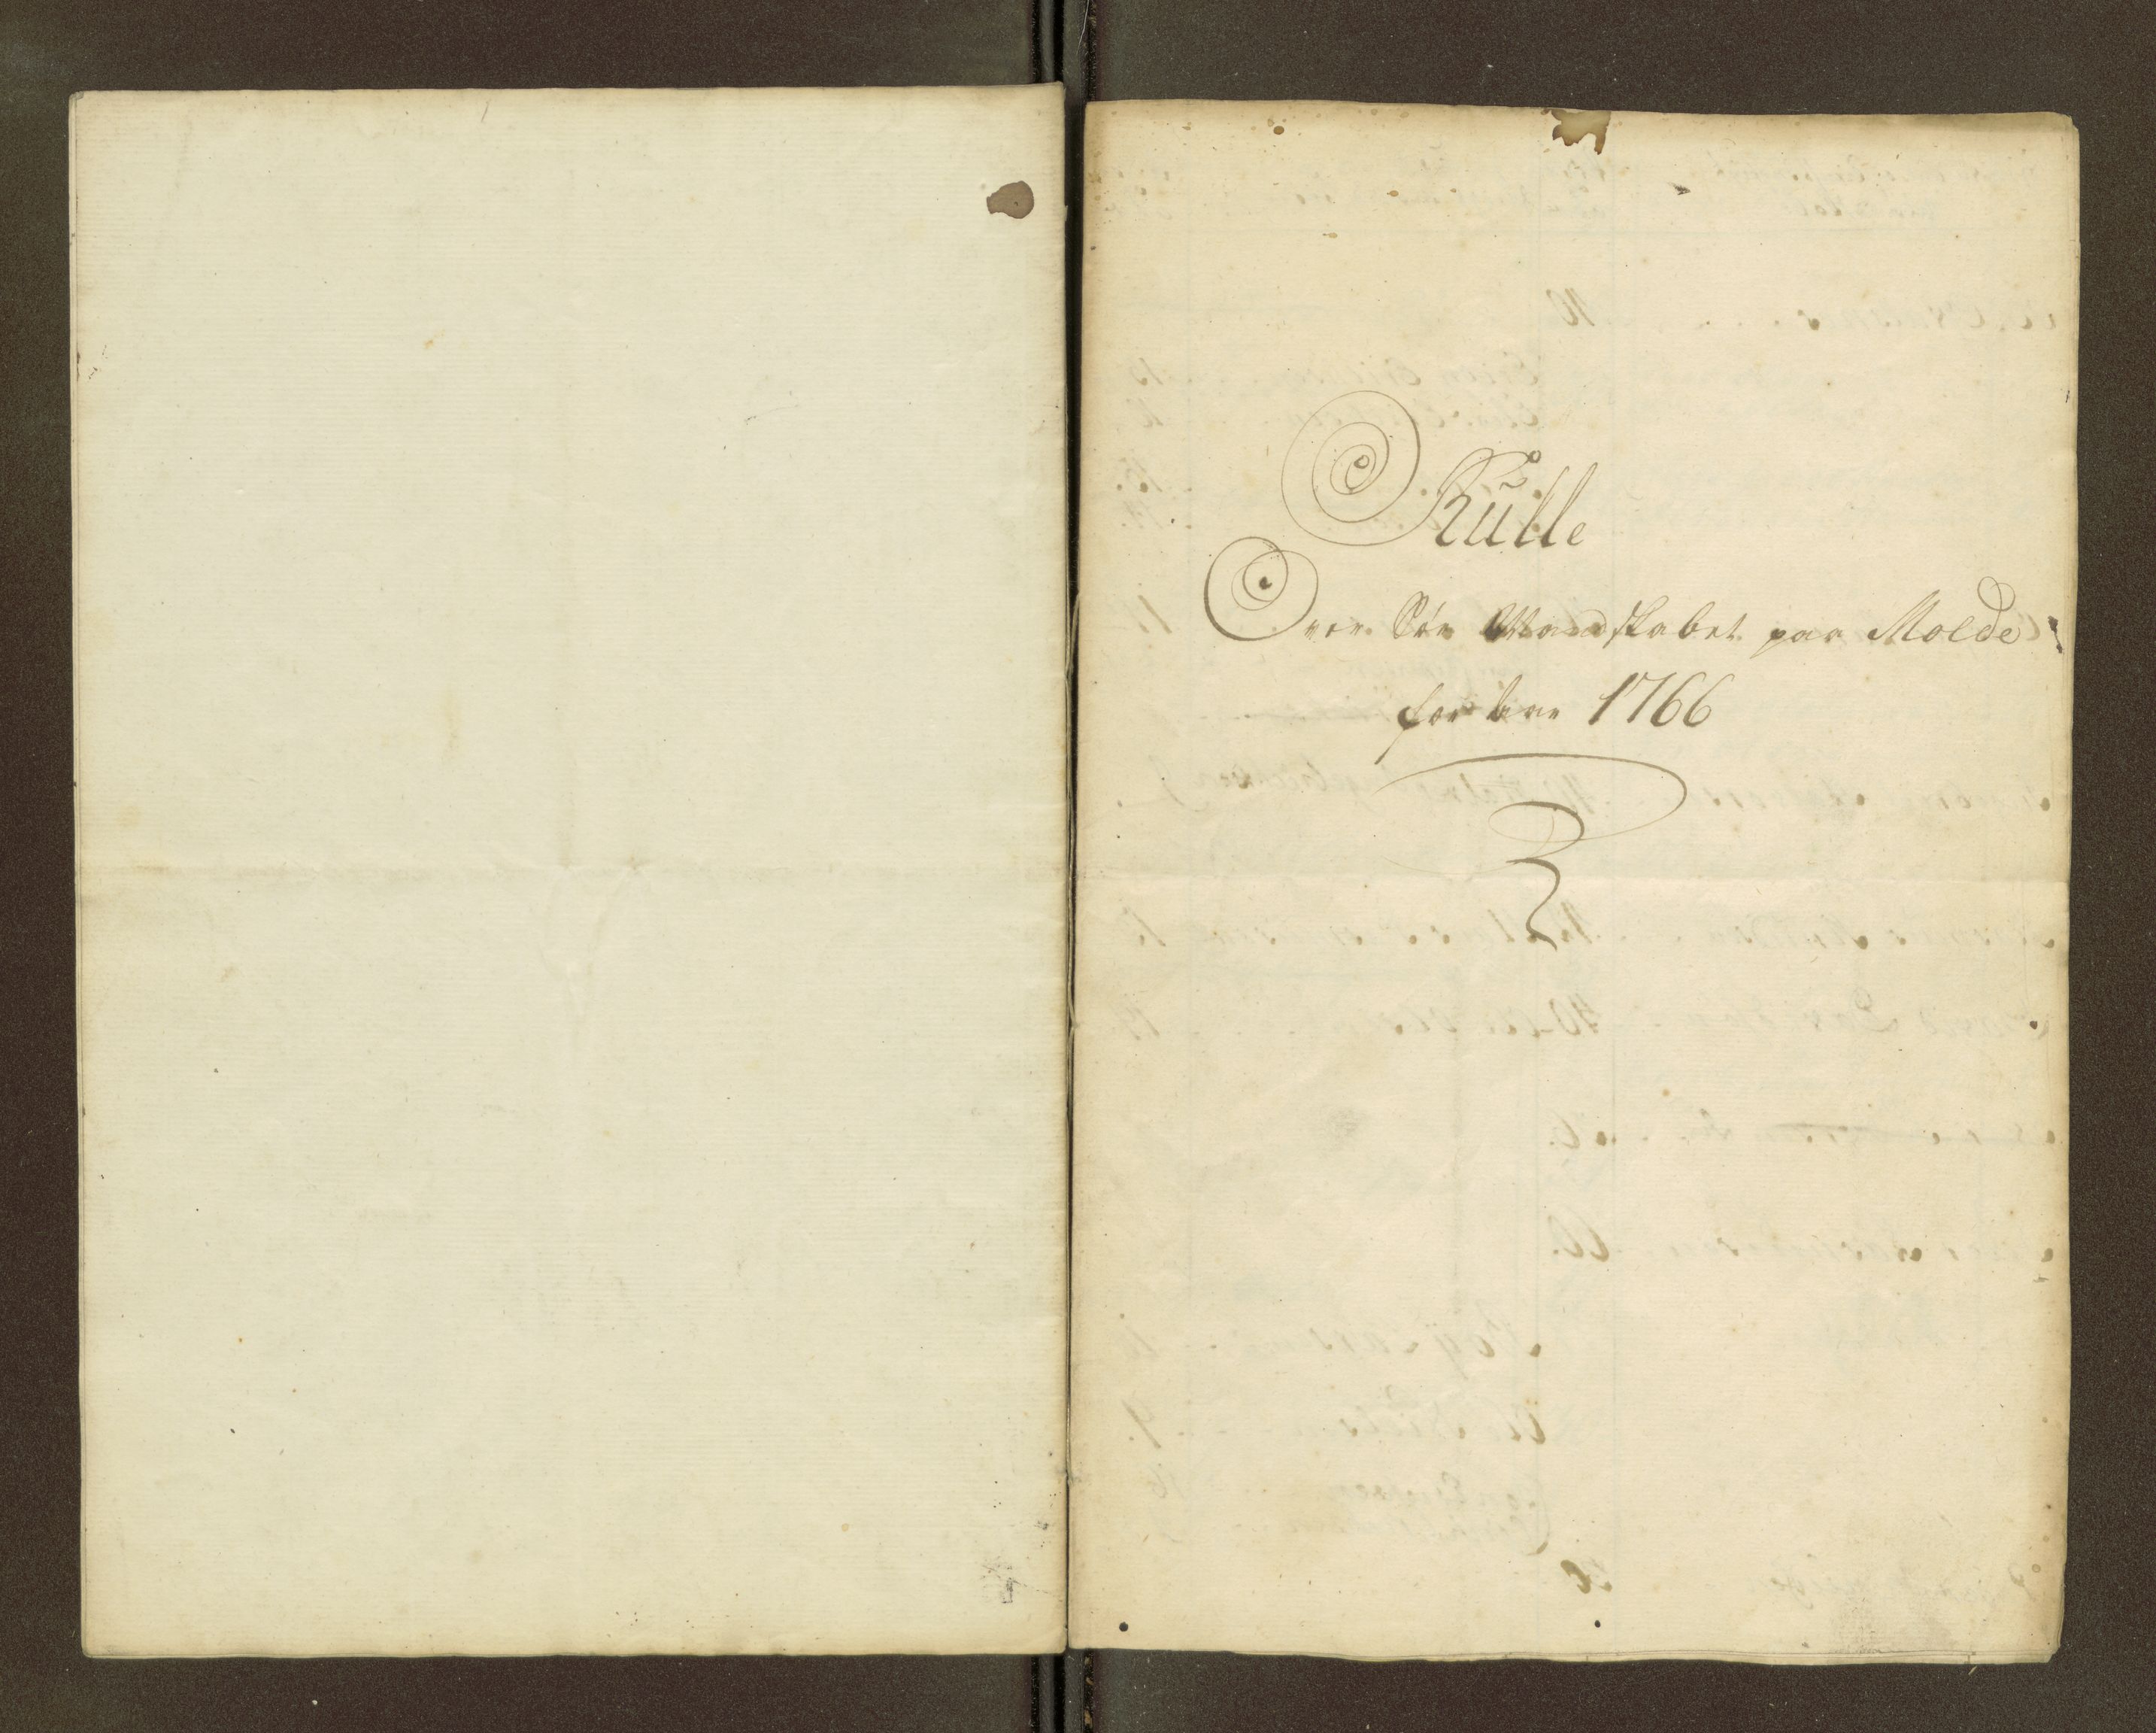 Rulle
Over Søe Mandskabet paa Molde
for Aar 1766